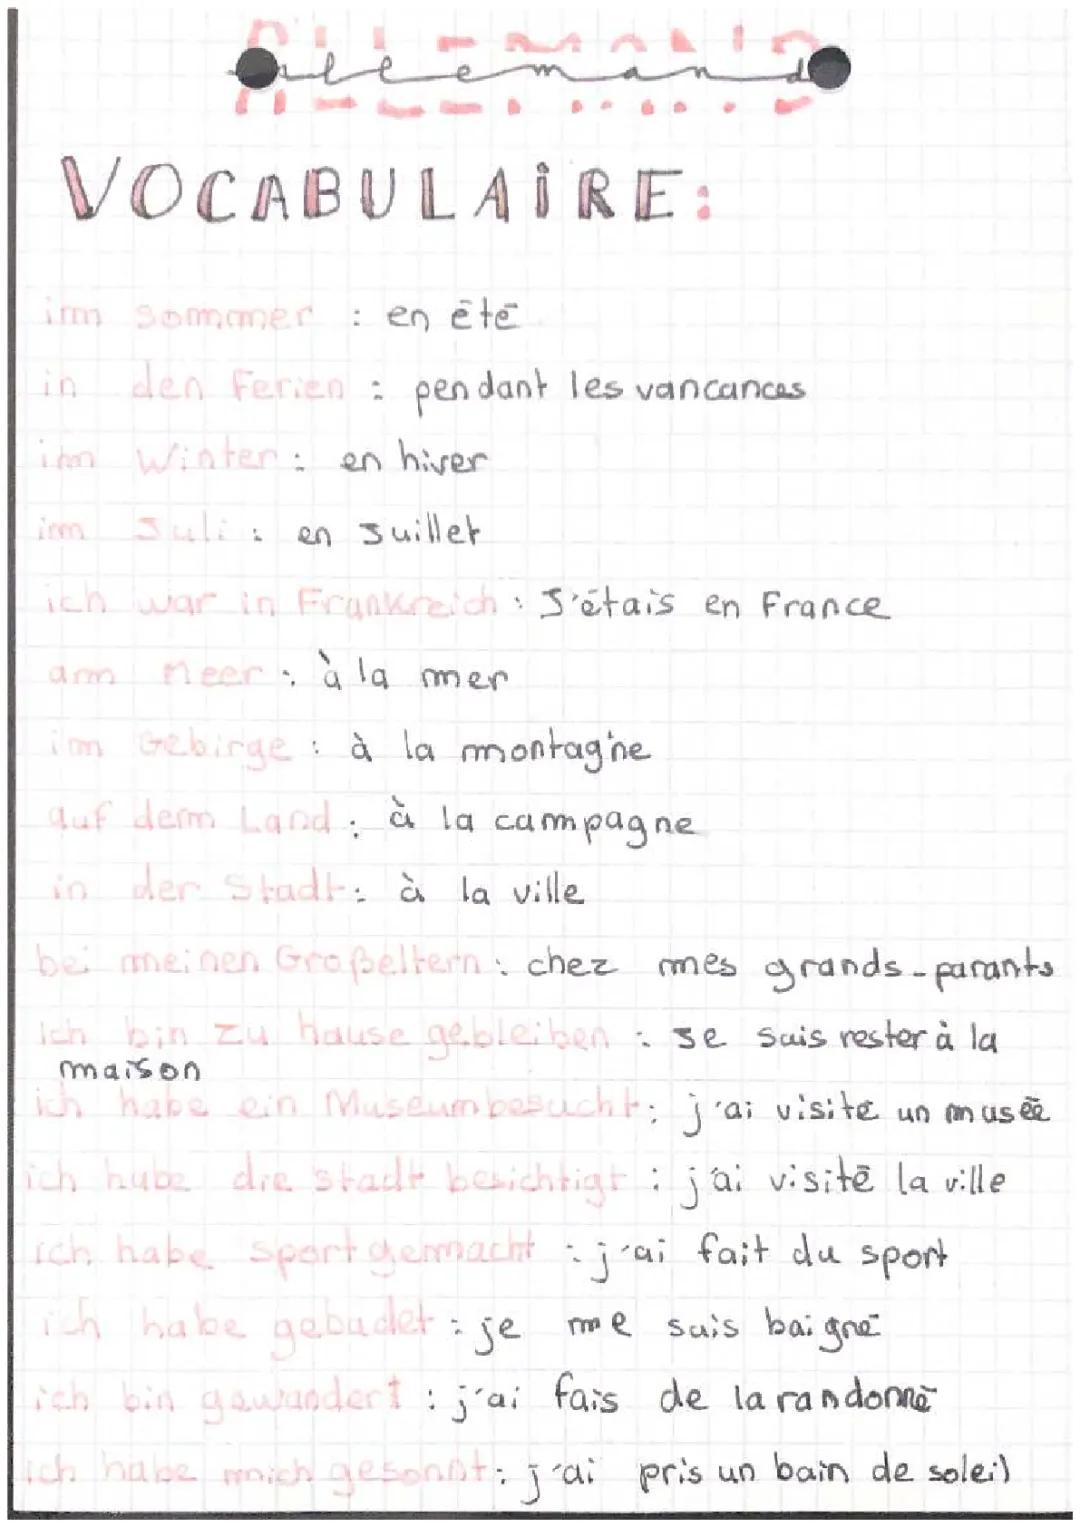 Allemand
VOCABULAIRE:
im Sommer : en été
in den Ferien : pendant les vancances
im Winter : en hiver
im Juli : en Juillet
ich war in Frankreich : J'étais en France
am Meer : à la mer
im Gebirge : à la montagne
auf dem Land : à la campagne
in der Stadt : à la ville
bei meinen Großeltern : chez mes grands-parants
Ich bin zu hause gebleiben : Je suis rester à la
maison
ich habe ein Museum besucht : j'ai visité un musée
ich habe die stadt besichtigt : j'ai visité la ville
ich habe sport gemacht : j'ai fait du sport
ich habe gebadet : je me suis baigné
ich bin gewandert : j'ai fais de la randonné
ich habe mich gesonnt : j'ai pris un bain de soleil